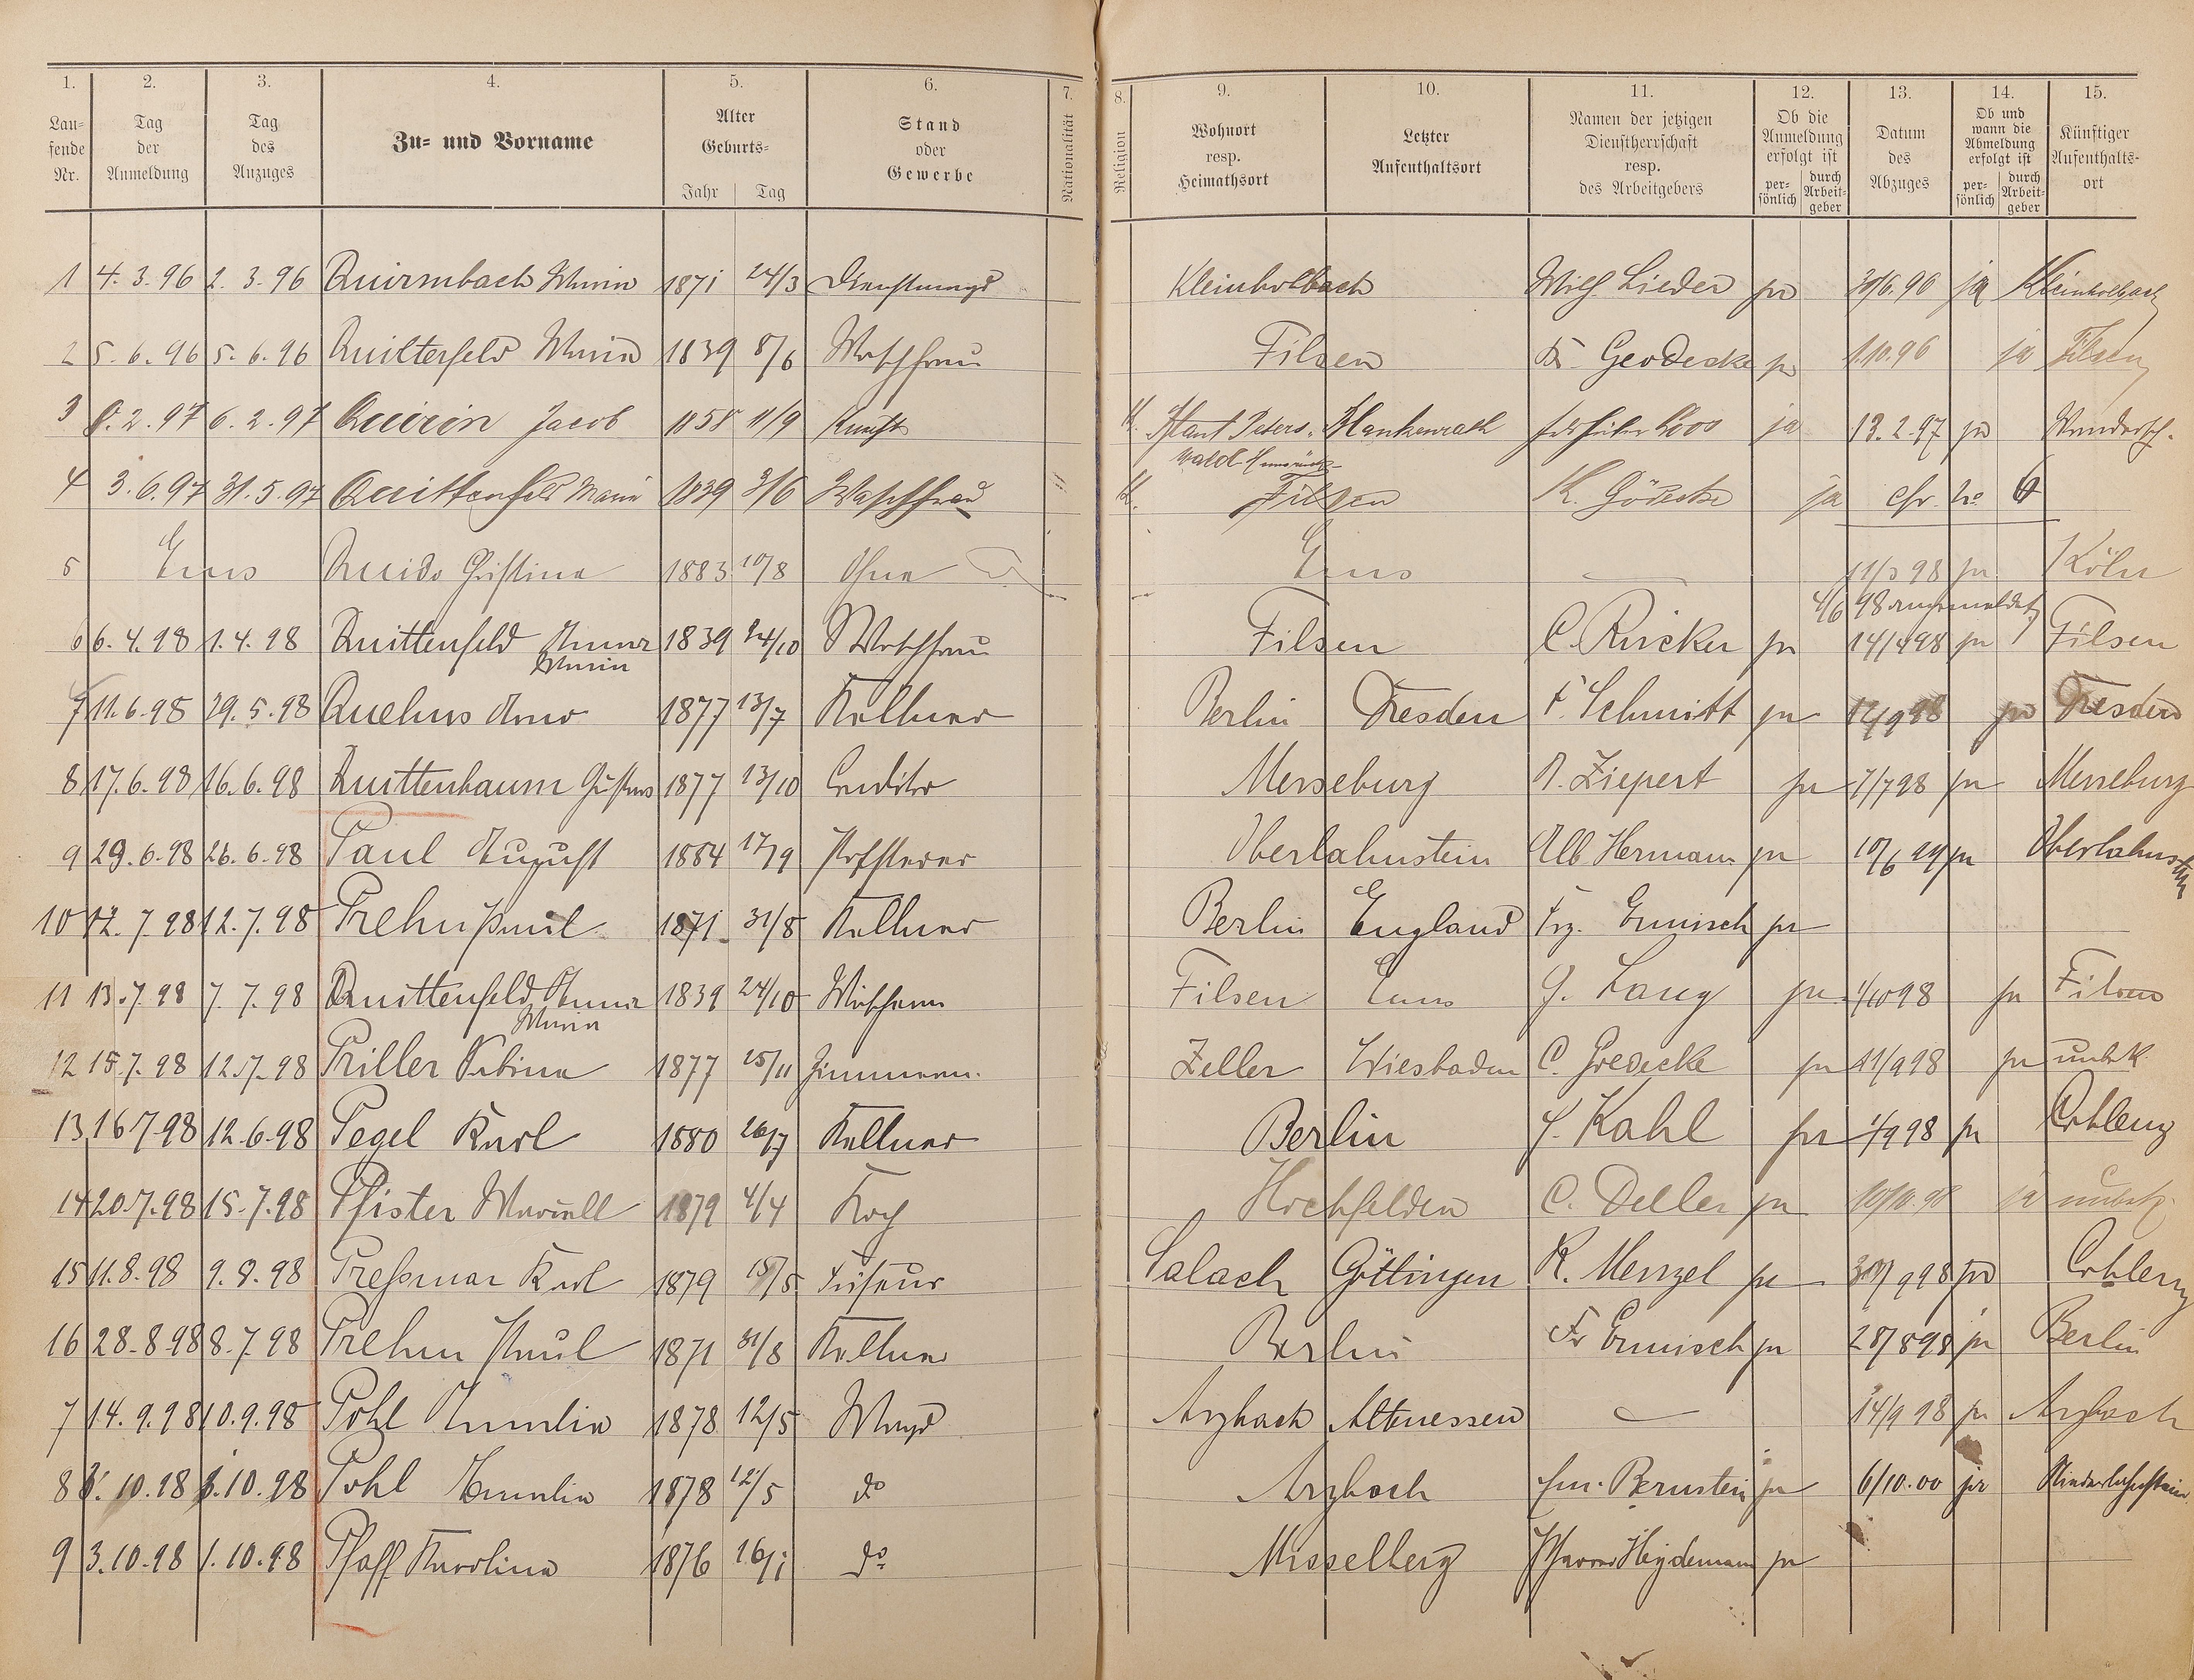 1. 2. 3. 4. 5. 6. 7. 8. 9. 10. 11. 12. 13. 14. 15.
Lau=
fende
Nr.
Tag
der
Anmeldung
Tag
des
Anzuges
Zu= und Vorname
Alter
Geburts=
Jahr Tag
Stand
oder
Gewerbe
Nationalität
Religion
Wohnort
resp.
Heimathsort
Letzter
Aufenthaltsort
Namen der jetzigen
Dienstherrschaft
resp.
des Arbeitgebers
Ob die
Anmeldung
erfolgt ist
per=
sönlich
durch
Arbeit=
geber
Datum
des
Abzuges
Ob und
wann die
Abmeldung
erfolgt ist
per=
sönlich
durch
Arbeit=
geber
Künftiger
Aufenthalts=
ort
1 4. 3. 96 2. 3. 96 Quirmbach Maria 1871 24/3 Dienstmagd Kleinholbach Wilh. Lieder ja 30/6. 96 ja Kleinholbach
2 5. 6. 96 5. 6. 96 Quitterfeld Maria 1839 8/6 Waschfrau Filsen Geodecke ja 1.10.96 ja Filsen
3 8. 2. 97 6. 2. 97 Quirin Jacob 1858 11/9 K. Peters- Blankenrath Loos ja 13. 2. 97 ja
wald
4 3. 6. 97 31. 5. 97 Quittenfeld Maria 1839 3/6 Waschfrau K. Filsen K. Gödecke ja cfr. No 6
5 Ems Quido Christina 1883 10/8 Ohne Ems 11/3 98 ja Köln
4/6 98 angemeldet
6 6. 4. 98 1. 4. 98 Quittenfeld Anna 1839 24/10 Waschfrau Filsen C. Rücker ja 14/4 98 ja Filsen
Maria
7 11. 6. 98 29. 5. 98 Quehus Arno 1877 13/7 Kellner Berlin Dresden F. Schmitt ja 12/9 98 ja Dresden
8 17. 6. 98 16. 6. 98 Quittenbaum Gustav 1877 13/10 Conditor Merseburg A. Ziepert ja 7/7 98 ja Merseburg
9 29. 6. 98 26. 6. 98 Paul August 1884 17/9 Oberlahnstein Alb Hermann ja 10/6 99 ja Oberlahnstein
10 12. 7. 98 12. 7. 98 Prehn Paul 1871 31/8 Kellner Berlin England Frz. Ermisch ja
11 13. 7. 98 7. 7. 98 Quittenfeld Anna 1839 24/10 Waschfrau Filsen Ems G. Lang ja 1/10 98 ja Filsen
Maria
12 15. 7. 98 12. 7. 98 Priller Sabina 1877 25/11 Zimmerm. Zeller Wiesbaden C. Goedecke ja 11/9 98 ja unbek.
13 16 7. 98 12. 6. 98 Pegel Karl 1880 26/7 Kellner Berlin J. Kahl ja 1/9 98 ja Coblenz
14 20. 7. 98 15. 7. 98 Pfister Marzell 1879 4/4 Koch Hochfelden C. Deller ja 10/10. 98 ja unbek.
15 11. 8. 98 9. 8. 98 Preßmar Karl 1879 15/5 Friseur Salach Göttingen R. Menzel ja 30/9 98 ja Coblenz
16 28. 8. 98 8. 7. 98 Prehn Paul 1871 31/8 Kellner Berlin Fr Ermisch ja 28/8 98 ja Berlin
7 14. 9. 98 10. 9. 98 Pohl Amalia 1878 12/5 Magd Arzbach Altenessen 14/9 98 ja Arzbach
8 3. 10. 98 1. 10. 98 Pohl Amalia 1878 12/5 do Arzbach Em. Bernstein ja 6/10. 00 ja Niederlahnstein
9 3. 10. 98 1. 10. 98 Pfaff Karolina 1876 16/1 do Misselberg Pfarrer Heydemann ja